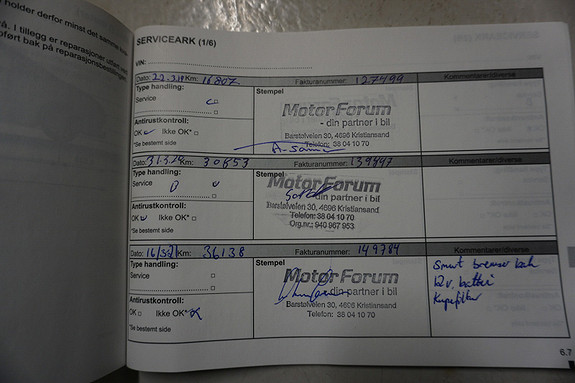 holder derfor minst det samme
I tillegg er reparasjoner utført
ført bak på reparasjonsbestem
SERVICEARK (1/6)
VIN:
Dato: Km: 16807 Fakturanummer: 127499 Kommentarer/diverse
Type handling:
Service
Stempel
MotorForum
- din partner i bil
Barstølveien 30, 4696 Kristiansand
Telefon: 38 04 10 70
Antirustkontroll:
OK Ikke OK*
*Se bestemt side
Dato: Km: 30653 Fakturanummer: 139447 Kommentarer/diverse
Type handling:
Service
Stempel
MotorForum
Barstølveien 30, 4696 Kristiansand
Telefon: 38 04 10 70
Org.nr.: 940 967 953
Antirustkontroll:
OK Ikke OK*
*Se bestemt side
Dato: Km: 36138 Fakturanummer: 149784 Kommentarer/diverse
Type handling:
Service
Stempel
MotorForum
- din partner i bil
Barstølveien 30, 4696 Kristiansand
Telefon: 38 04 10 70
Antirustkontroll:
OK Ikke OK*
*Se bestemt side
Smurt bremser bak
12v. batteri
Kupefilter
6.7